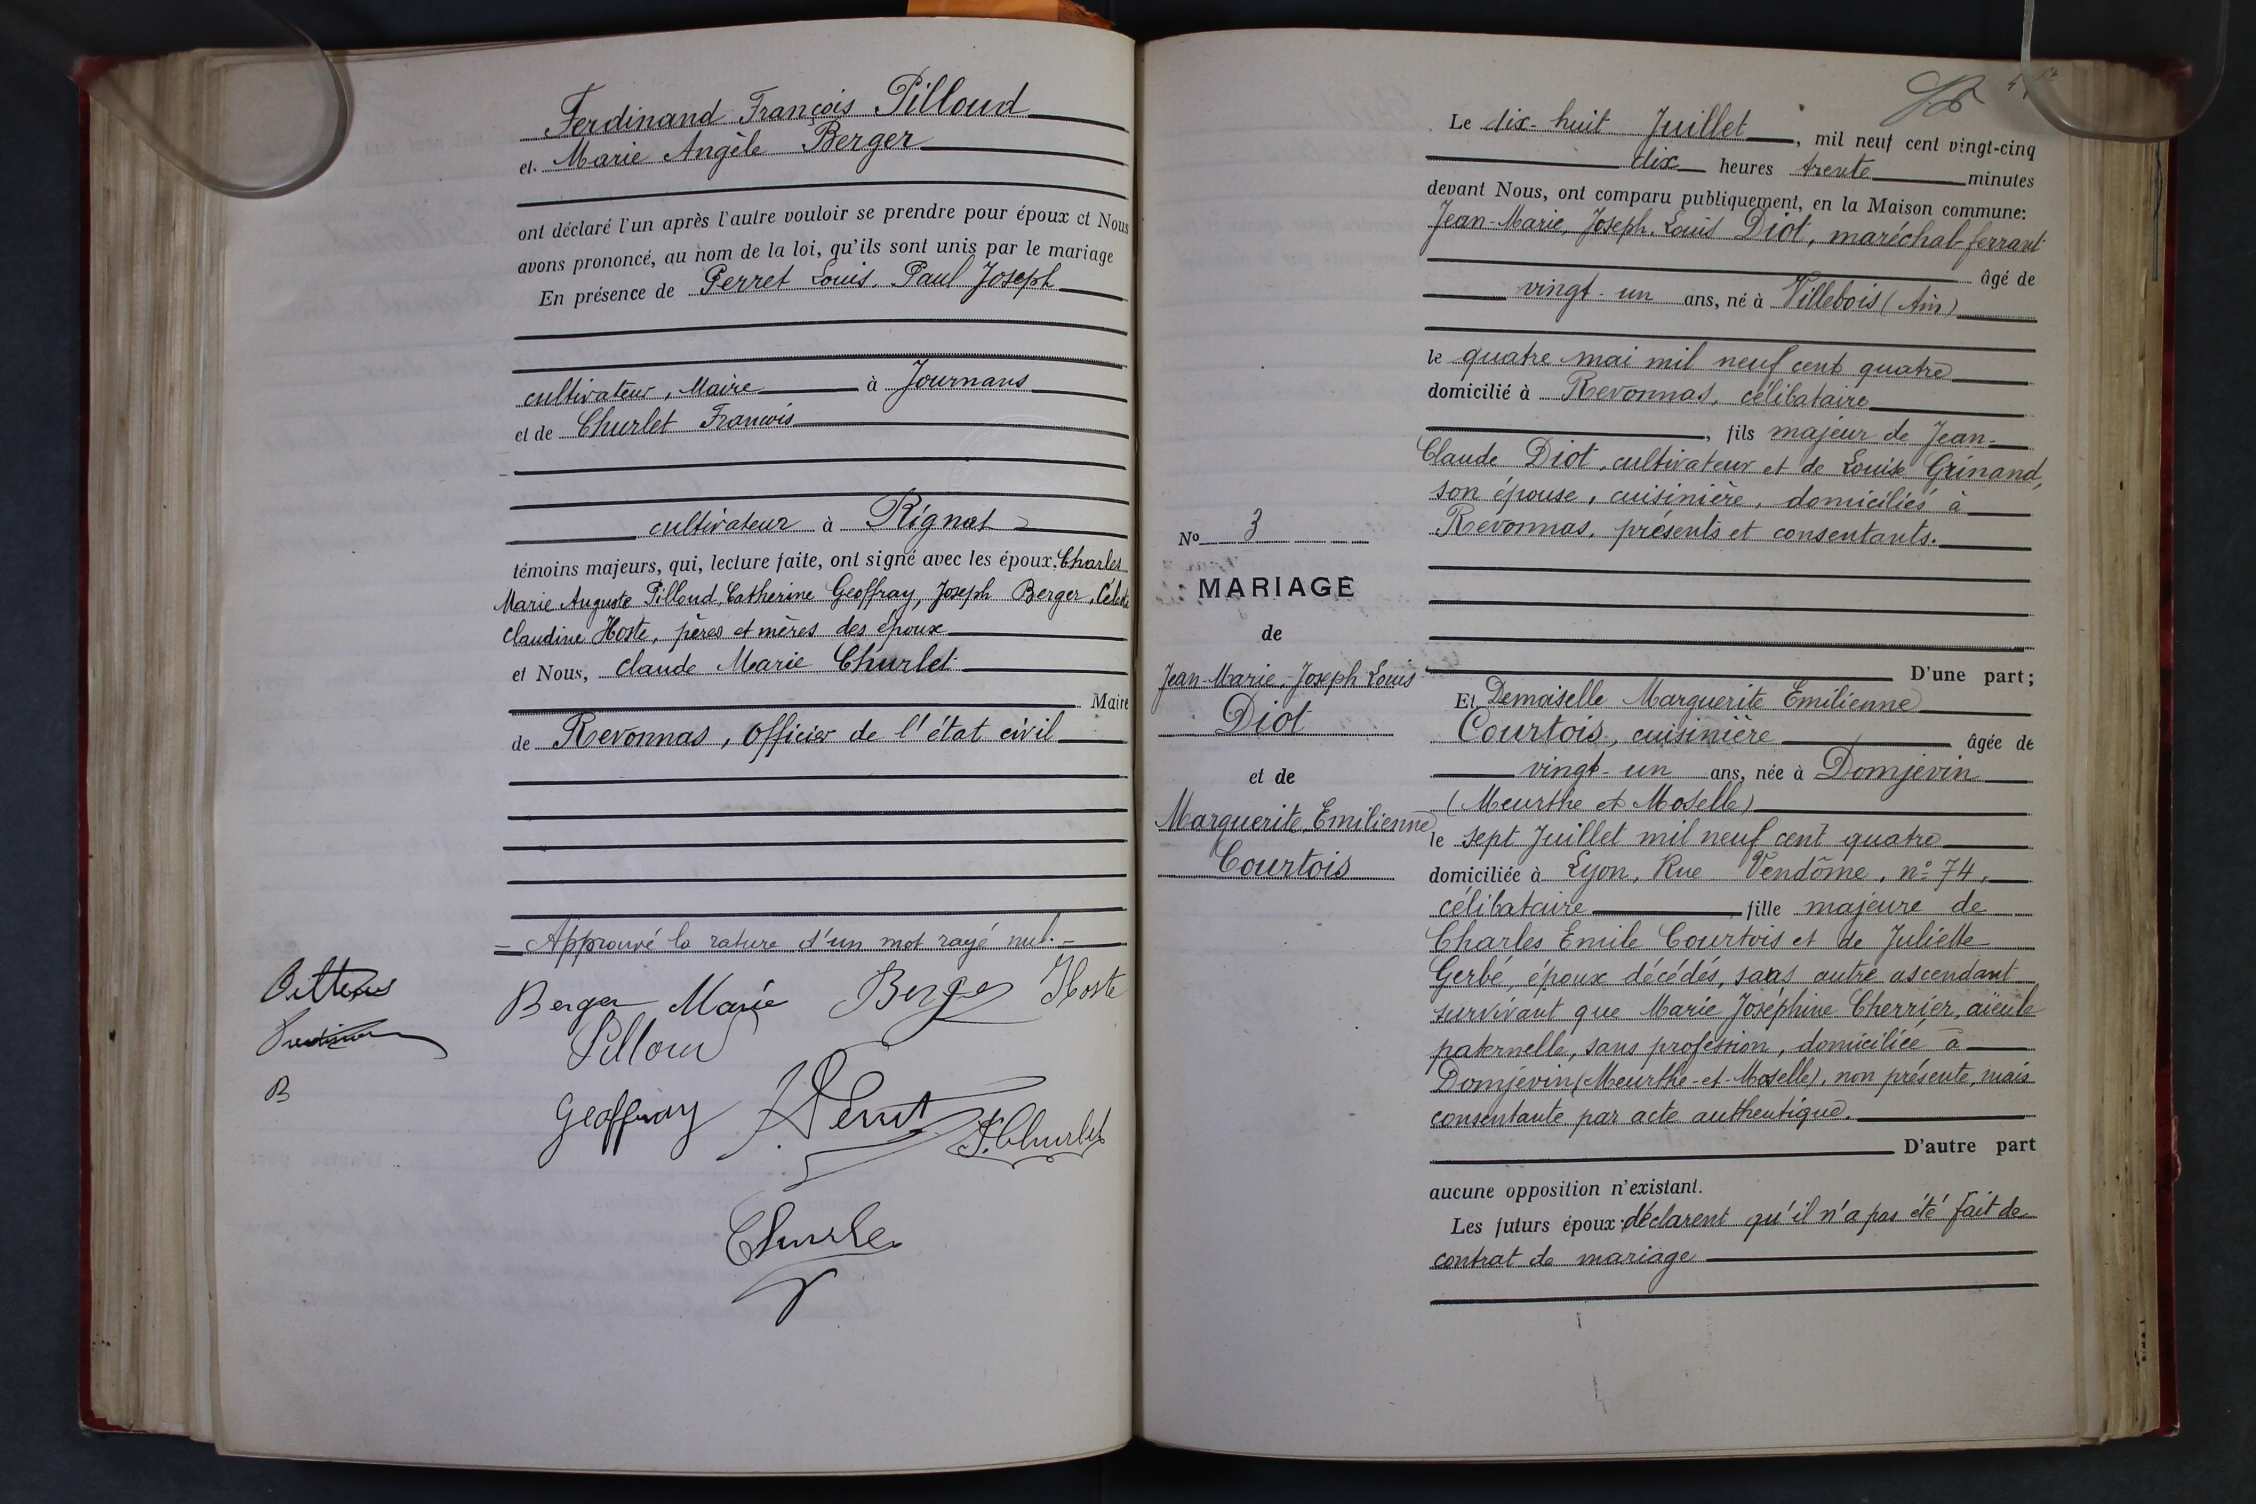 Ferdinand François Pilloud
et Marie Angèle Berger
ont déclaré l'un après l'autre vouloir se prendre pour époux et Nous
avons prononcé, au nom de la loi, qu'ils sont unis par le mariage
En présence de Perret Louis Paul Joseph
cultivateur, Maire à Journans
et de Churlet François
cultivateur à Rignat
témoins majeurs, qui, lecture faite, ont signé avec les époux. Charles
Marie Auguste Pilloud, Catherine Geoffray, Joseph Berger,
Claudine Hoste, pères et mères des époux
et Nous, Claude Marie Churlet
Maire
de Revonnas, Officier de l'état civil
= Approuvé la rature d'un mot rayé nul. =
Berger Marie Berger Hoste
Pilloud
B
Geoffray Perret F. Churlet
Churlet
Le dix-huit Juillet, mil neuf cent vingt-cinq
dix heures trente minutes
devant Nous, ont comparu publiquement, en la Maison commune:
Jean-Marie, Joseph, Louis Diot, maréchal-ferrant
âgé de
vingt-un ans, né à Villebois (Ain)
le quatre mai mil neuf cent quatre
domicilié à Revonnas, célibataire
, fils majeur de Jean-
Claude Diot, cultivateur et de Louise Grinand,
son épouse, cuisinière, domiciliés à
Revonnas, présents et consentants.
D'une part;
No 3
MARIAGE
de
Jean-Marie, Joseph Louis
Diot
et de
Marguerite, Emilienne
Courtois
Et Demoiselle Marguerite Emilienne
Courtois, cuisinière âgée de
vingt-un ans, née à Domjevin
(Meurthe et Moselle)
le sept Juillet mil neuf cent quatre
domiciliée à Lyon, Rue Vendôme, n° 74,
célibataire fille majeure de
Charles Emile Courtois et de Juliette
Gerbé, époux décédés, sans autre ascendant
survivant que Marie Joséphine Cherrier, aïeule
paternelle, sans profession, domiciliée à
Domjevin (Meurthe-et-Moselle), non présente, mais
consentante par acte authentique.
D'autre part
aucune opposition n'existant.
Les futurs époux déclarent qu'il n'a pas été fait de
contrat de mariage